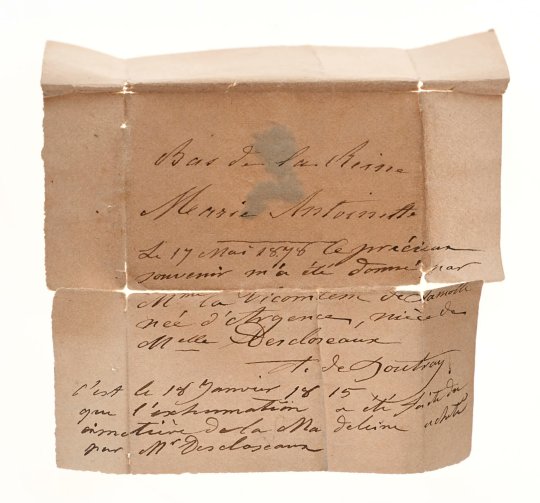 Bas de la Reine
Marie Antoinette
Le 17 Mai 1878 ce précieux
souvenir m'a été donné par
Mme la Vicomtesse de
née d'Argence, nièce de
Melle Descloseaux
C'est le 18 Janvier 1815
que l'exhumation a été faite du
cimetière de la Madeleine acheté
par Mr Descloseaux